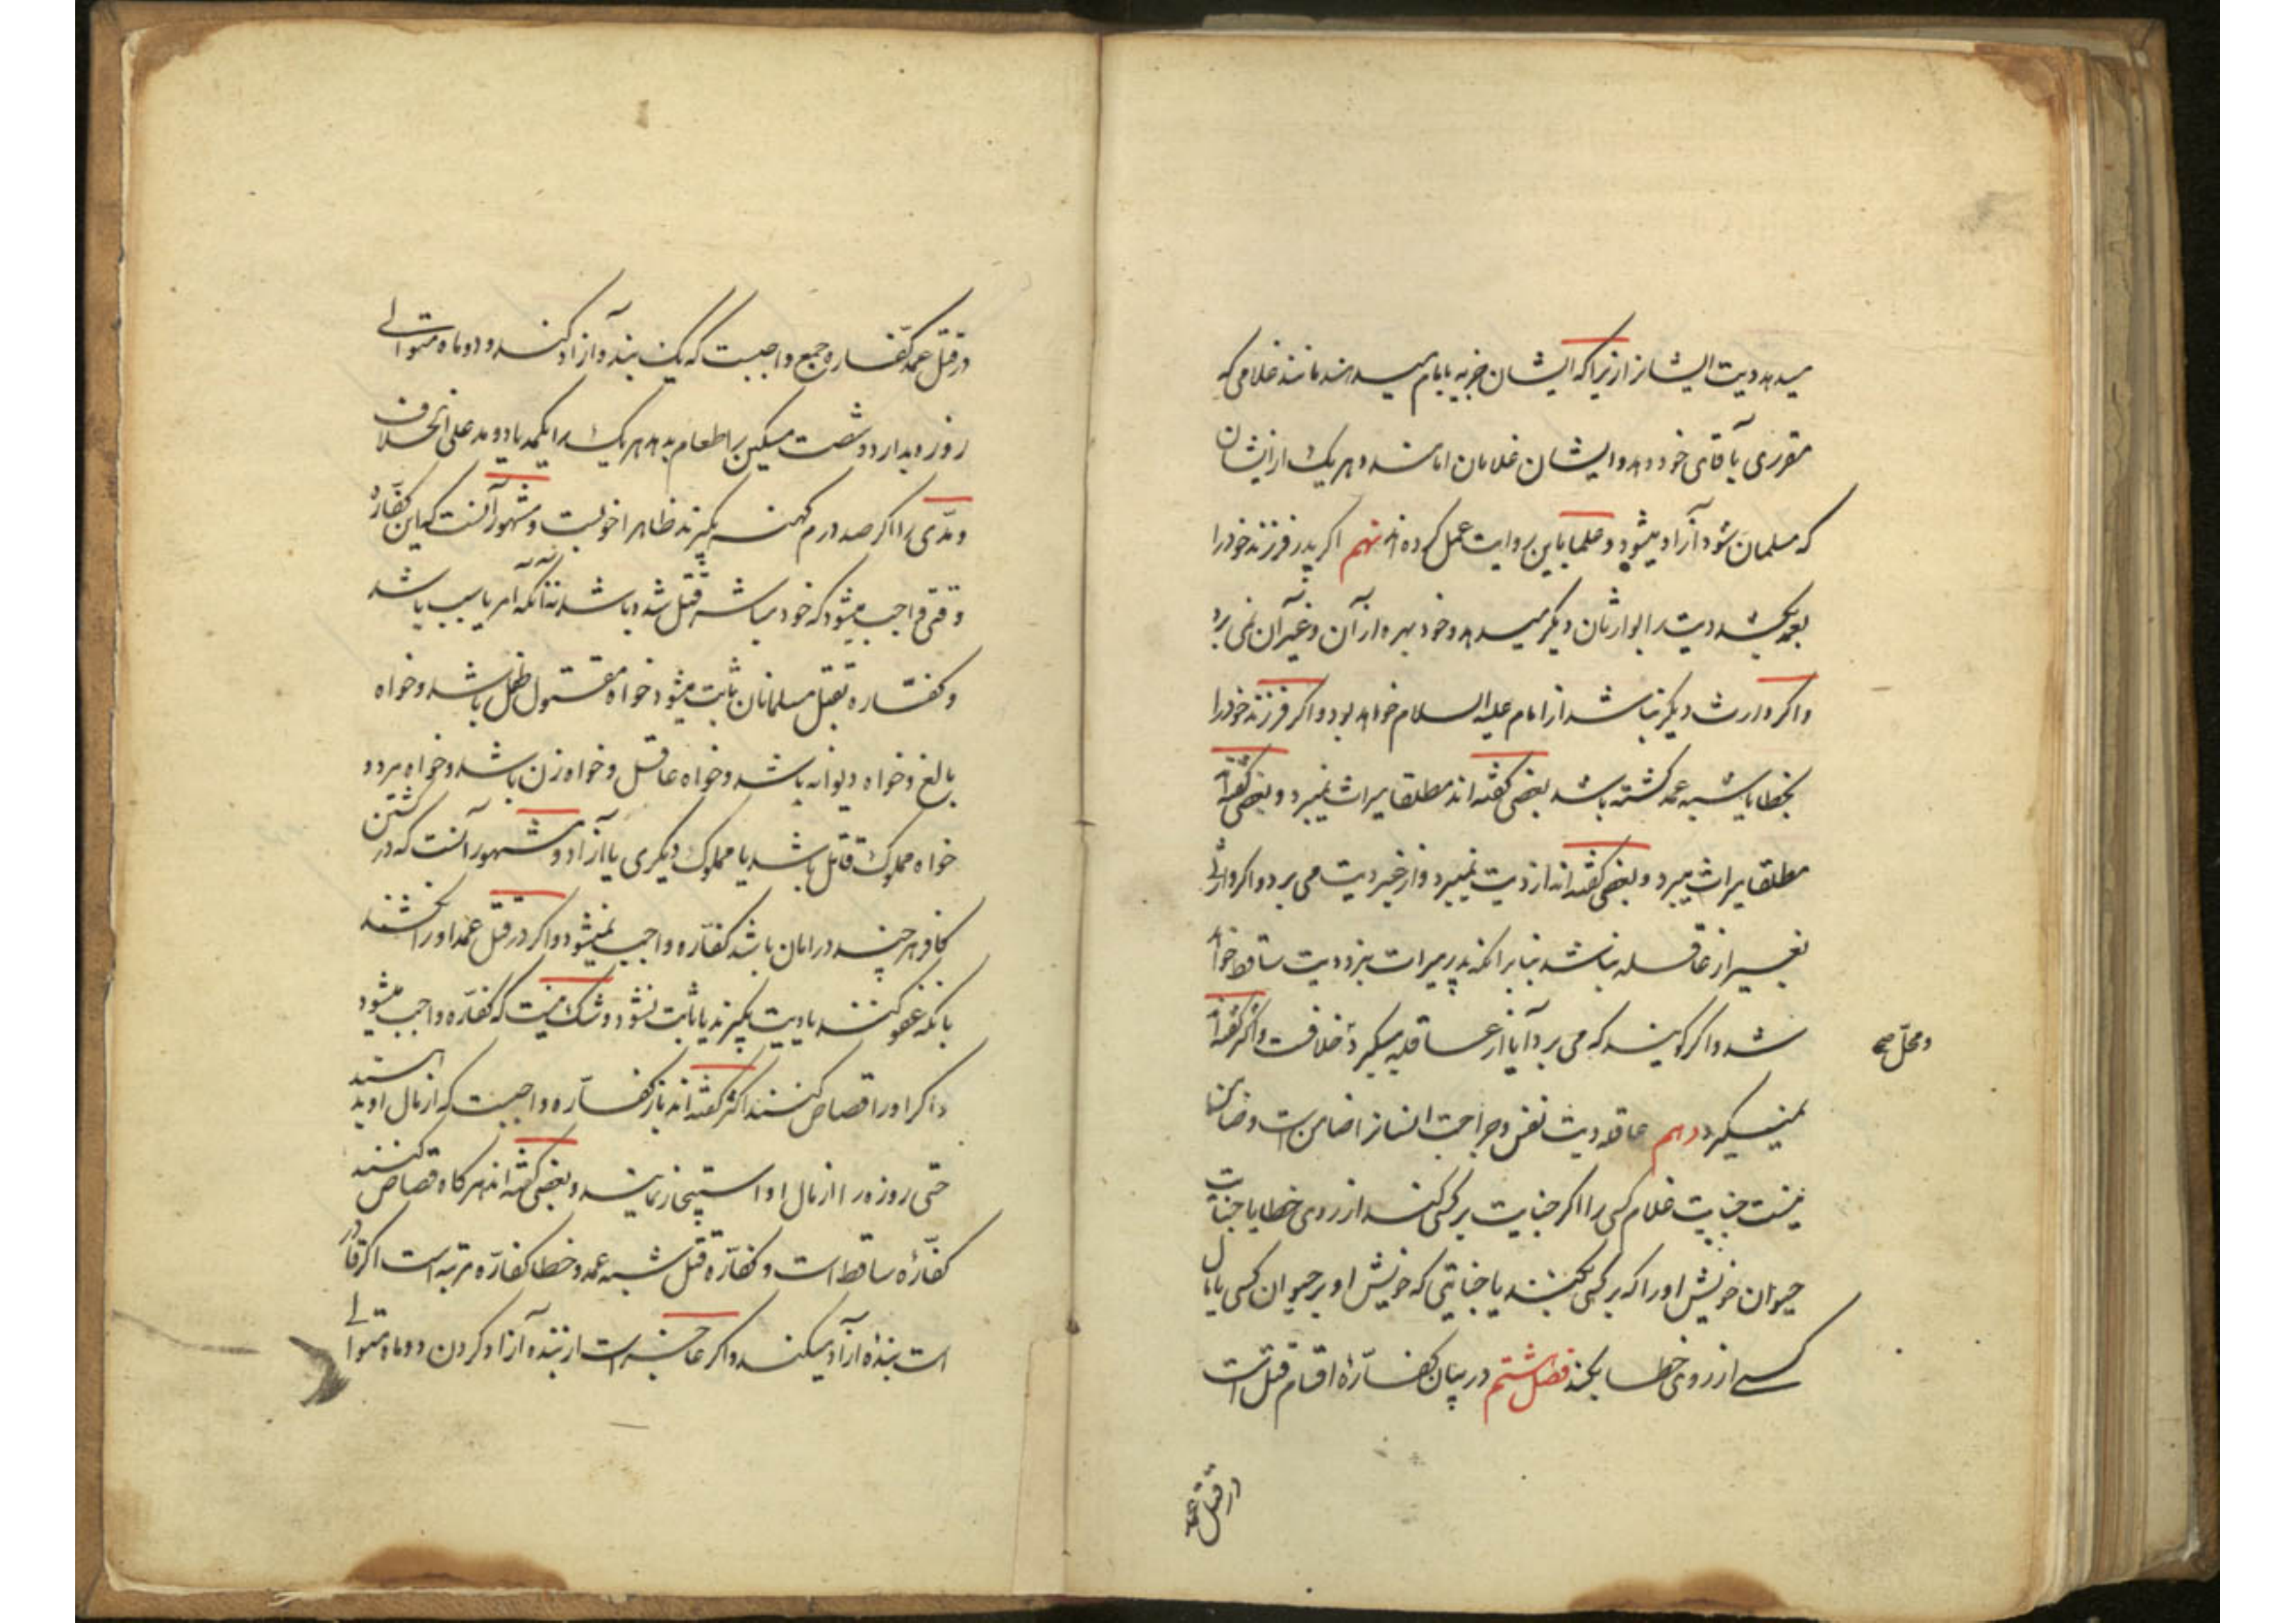 میدهد دیت ایشانرا زیرا که ایشان جزیه بامام میدهند مانند غلامی که
مقرری بآقای خود دهد و ایشان غلامان امامند و هر یک از ایشان
که مسلمان شود آزاد میشود و علما باین روایت عمل کرده‌اند نهم اگر پدر فرزند خود را
بعمد بکشد دیت را بوارثان دیگر میدهد و خود بهره از آن و غیر آن نمی برد
و اگر وارث دیگر نباشد از امام علیه السلام خواهد بود و اگر فرزند خود را
بخطا یا شبیه عمد کشته باشد بعضی گفته‌اند مطلقا میراث نمیبرد و بعضی گفته‌اند
مطلقا میراث میبرد و بعضی گفته‌اند از دیت نمیبرد و از غیر دیت می برد و اگر وارثی
بغیر از عاقله نباشد بنا بر آنکه پدر میراث نبرد دیت ساقط خواهد
شد و اگر گویند که می برد آیا از عاقله میگیرد خلافست و اکثر گفته‌اند
و محل صح
نمیگیرد دهم عاقله دیت نفس و جراحت انسانرا ضامن است و ضامن
نیست جنایت غلام کسی را اگر جنایت بر کسی کند از روی خطا یا جنایت
حیوان خویش او را که بر کسی بکنند یا جنایتی که خویش او بر حیوان کسی یا مال
کسی از روی خطا بکند فصل ششم در بیان کفارهٔ اقسام قتل است
در قتل عمد
در قتل عمد کفاره جمع واجبست که یک بنده آزاد کند و دو ماه متوالی
روزه بدارد و شصت مسکین را طعام بدهد هر یک را یکمد یا دو مد علی الخلاف
و مدی را اگر صد درم کهنه بگیرند ظاهرا خوبست و مشهور آنست که این کفاره
وقتی واجب میشود که خود مباشر قتل شده باشد نه آنکه آمر یا سبب باشد
و کفاره بقتل مسلمانان ثابت میشود خواه مقتول طفل باشد و خواه
بالغ و خواه دیوانه باشد و خواه عاقل و خواه زن باشد و خواه مرد و
خواه مملوک قاتل باشد یا مملوک دیگری یا آزاد و مشهور آنست که در کشتن
کافر هر چند در امان باشد کفاره واجب نمیشود و اگر در قتل عمد او را نکشند
بانکه عفو کنند یا دیت بگیرند یا ثابت نشود شک نیست که کفاره واجب میشود
و اگر او را قصاص کنند اکثر گفته‌اند باز کفاره واجبست که از مال او بدهند
حتی روزه را از مال او استیجار نمایند و بعضی گفته‌اند هر گاه قصاص کنند
کفاره ساقط است و کفاره قتل شبیه عمد و خطا کفاره مرتبه است اگر قادر
است بندهٔ آزاد میکند و اگر عاجز است از بنده آزاد کردن دو ماه متوالی